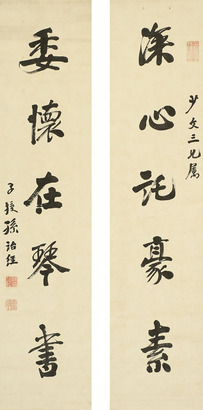 深心託豪素
少文三兄属
委懷在琴書
子授孫詒經